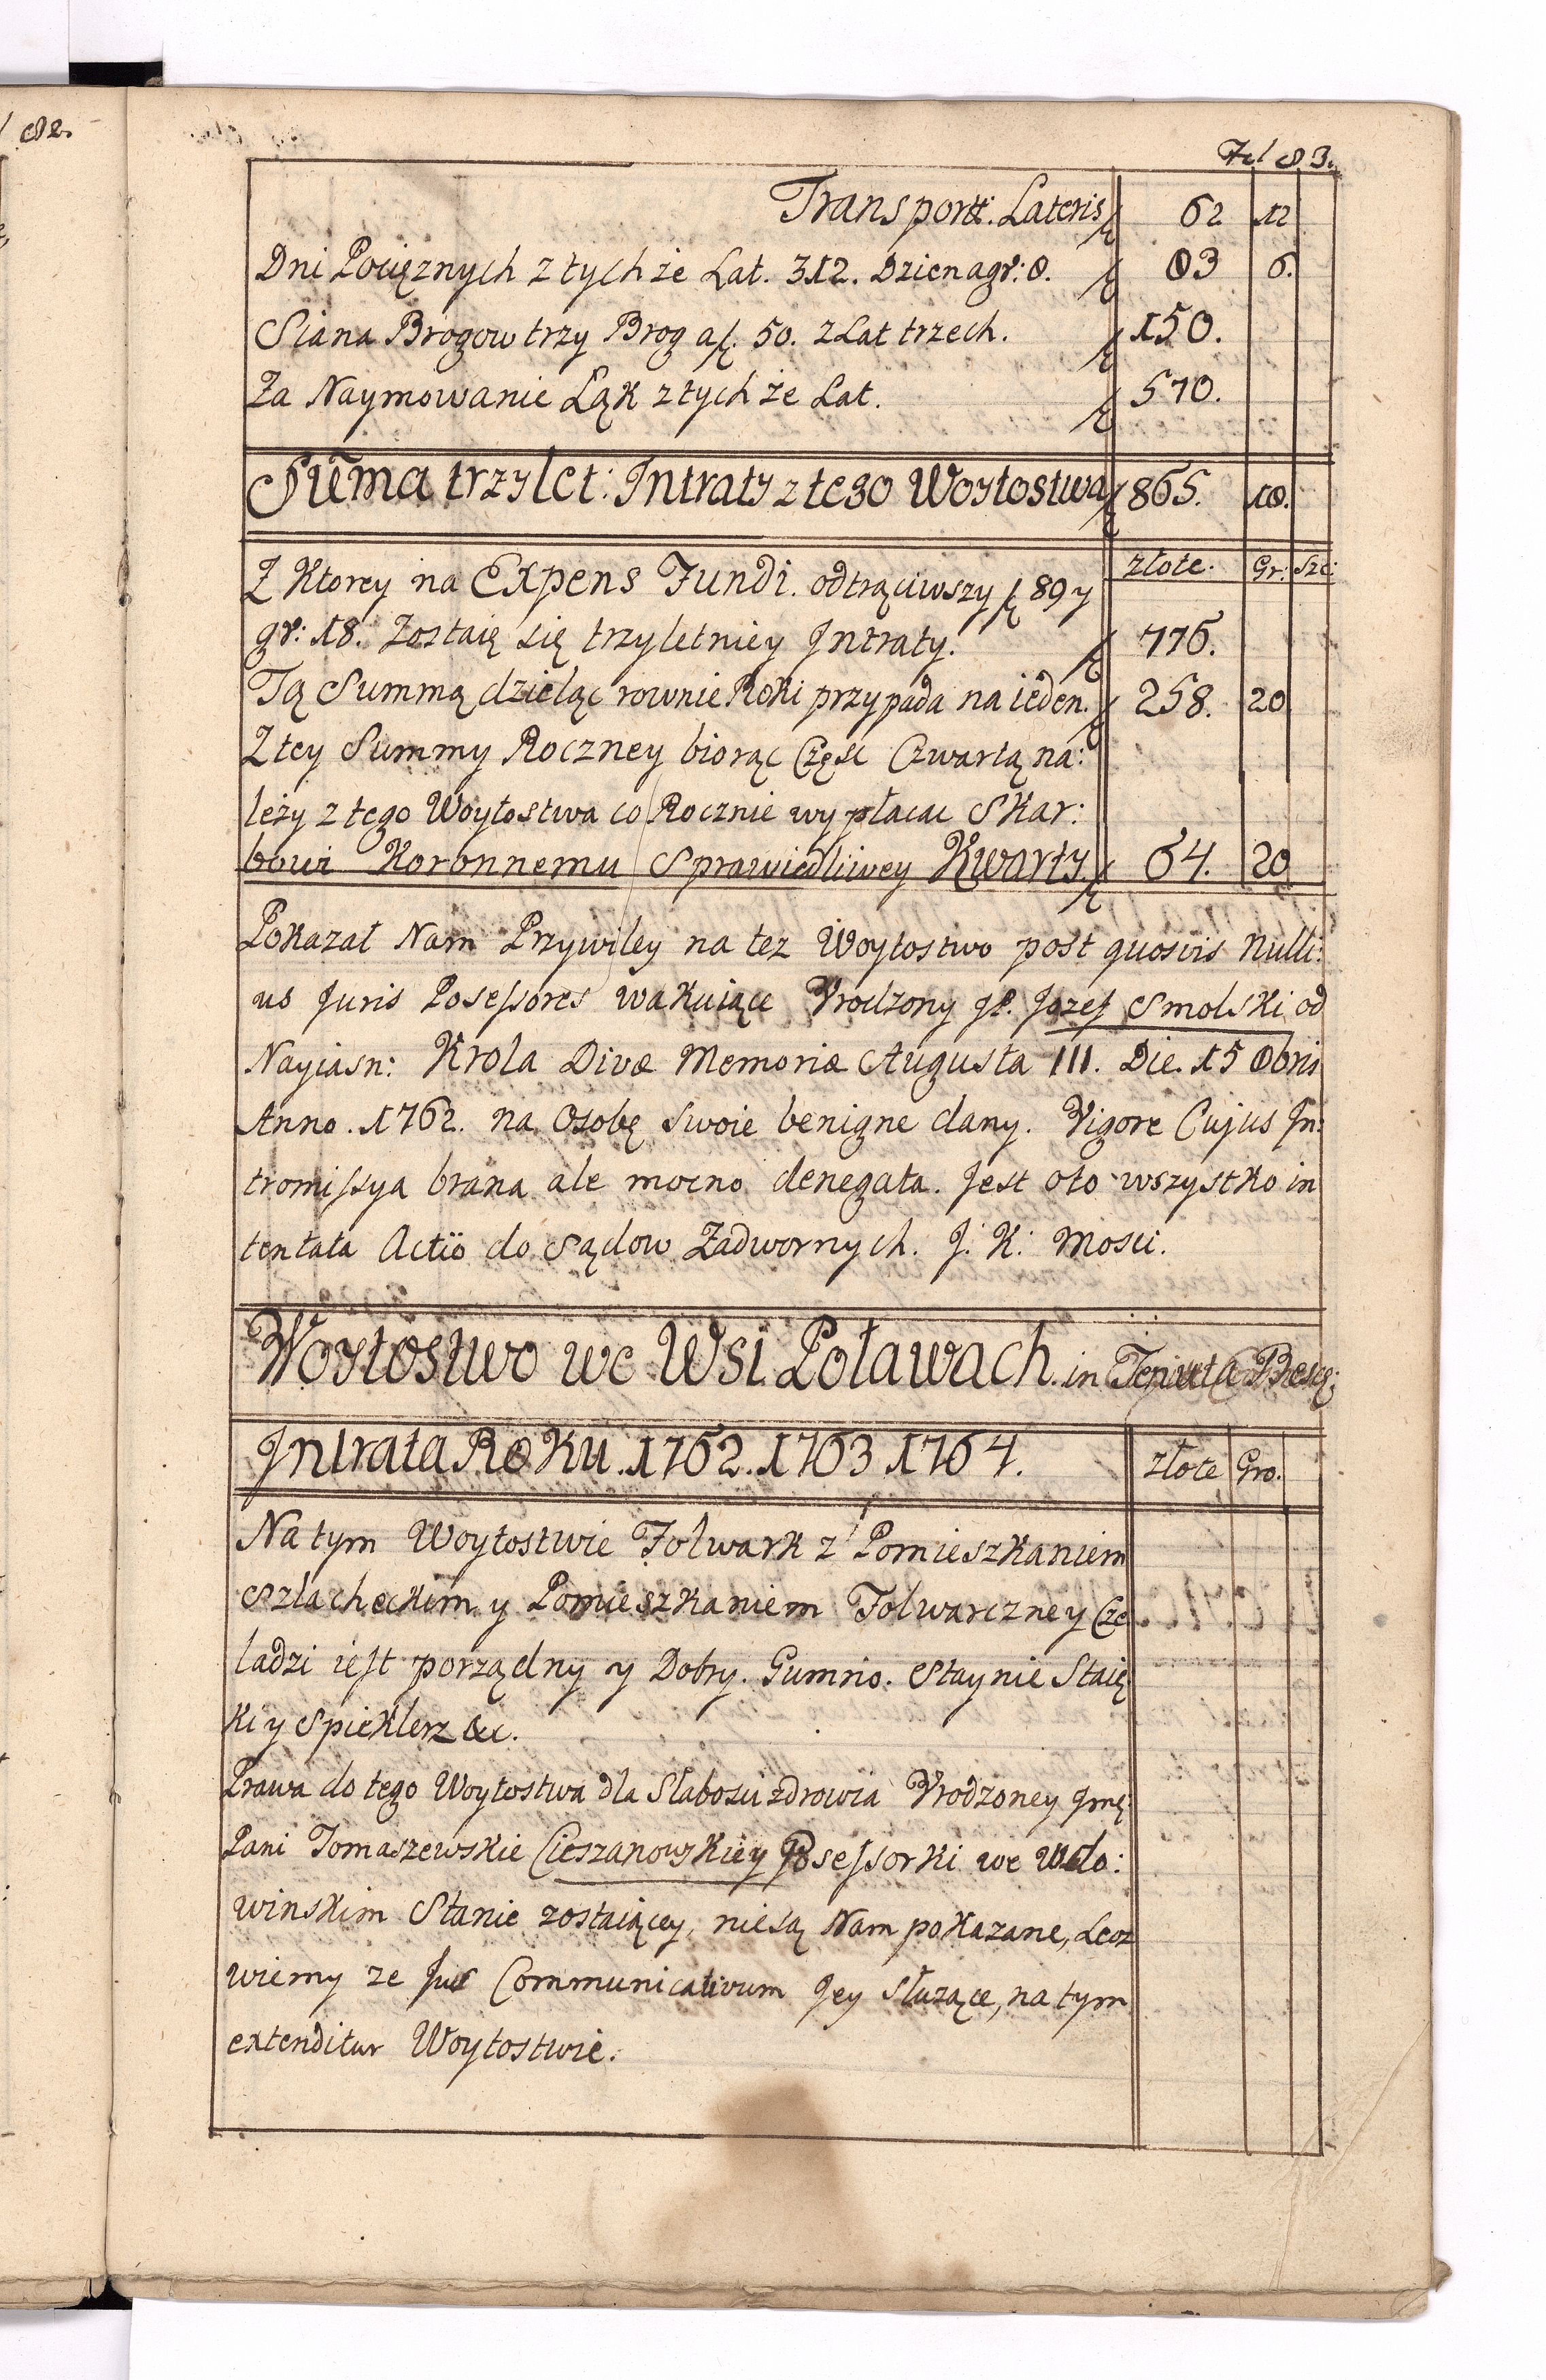 82.
Fol 83.
Transport: Lateris ƒ 62 12
Dni Pocięznych z tych że Lat. 312. Dzien a gr: 8. ƒ 83 6.
Siana Brogow trzy Brog a ƒ. 50. z Lat trzech. ƒ 150.
Za Naymowanie Łąk z tych że Lat. ƒ 570.
Sum̃a trzylet: Intraty z tego Woytostwa ƒ 865. 18.
Z Ktorey na Expens Fundi. odtrąciwszy ƒ 89 y złote. Gr: Sze:
gr: 18. Zostaię się trzyletniey Intraty. ƒ 776.
Tą Summą dzieląc rownie Roki przypada na ieden. ƒ 258. 20
Z tey Summy Roczney biorąc Częsc Czwartą na:
leży z tego Woytostwa co Rocznie wypłacac Skar:
bowi Koronnemu Sprawiedliwey Kwarty. ƒ 64. 20
Pokazał Nam Przywiley na tez Woytostwo post quosvis nulli:
us Juris Posessores wakuiące Vrodzony JP. Jozef Smolski od
Nayiasn: Krola Divæ Memoriæ Augusta III. Die. 15 8bris
Anno. 1762. na Osobę swoie benigne dany. Vigore Cujus In:
tromissya brana ale mocno denegata. Jest oto wszystko in
tentata Actio do Sądow Zadwornych. J. K: Mosci.
Woytostwo we Wsi Poławach. in
Intrata Roku. 1762. 1763 1764. złote Gro.
Na tym Woytostwie Folwark z Pomieszkaniem
Szlacheckim y Pomieszkaniem Folwarczney Cze
ladzi iest porządny y Dobry. Gumno. Staynie Staię
ki y Spicklerz &c.
Prawa do tego Woytostwa dla Słabosci zdrowia Vrodzoney Jmę
Pani Tomaszewskie Cieszanowskiey Posessorki we Wdo:
winskim Stanie zostaiącey, niesą Nam pokazane, Lecz
wiemy ze Jus Communicativum Jey służące, na tym
extenditur Woytostwie.